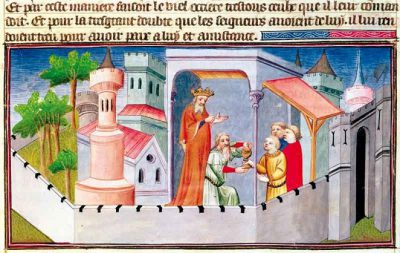 Et par ceste maniere faisoit le viel occirre trestous ceulx que il leur coman
doit. Et pour la tresgrant doubte que les seigneurs auoient de luy. il lui ren
doient treu pour auoir paix a luy et amistance.